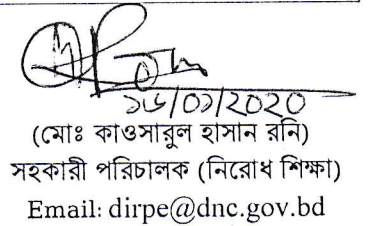 ১৬/০১/২০২০
(মোঃ কাওসারুল হাসান রনি)
সহকারী পরিচালক (নিরোধ শিক্ষা)
Email: dirpe@dnc.gov.bd